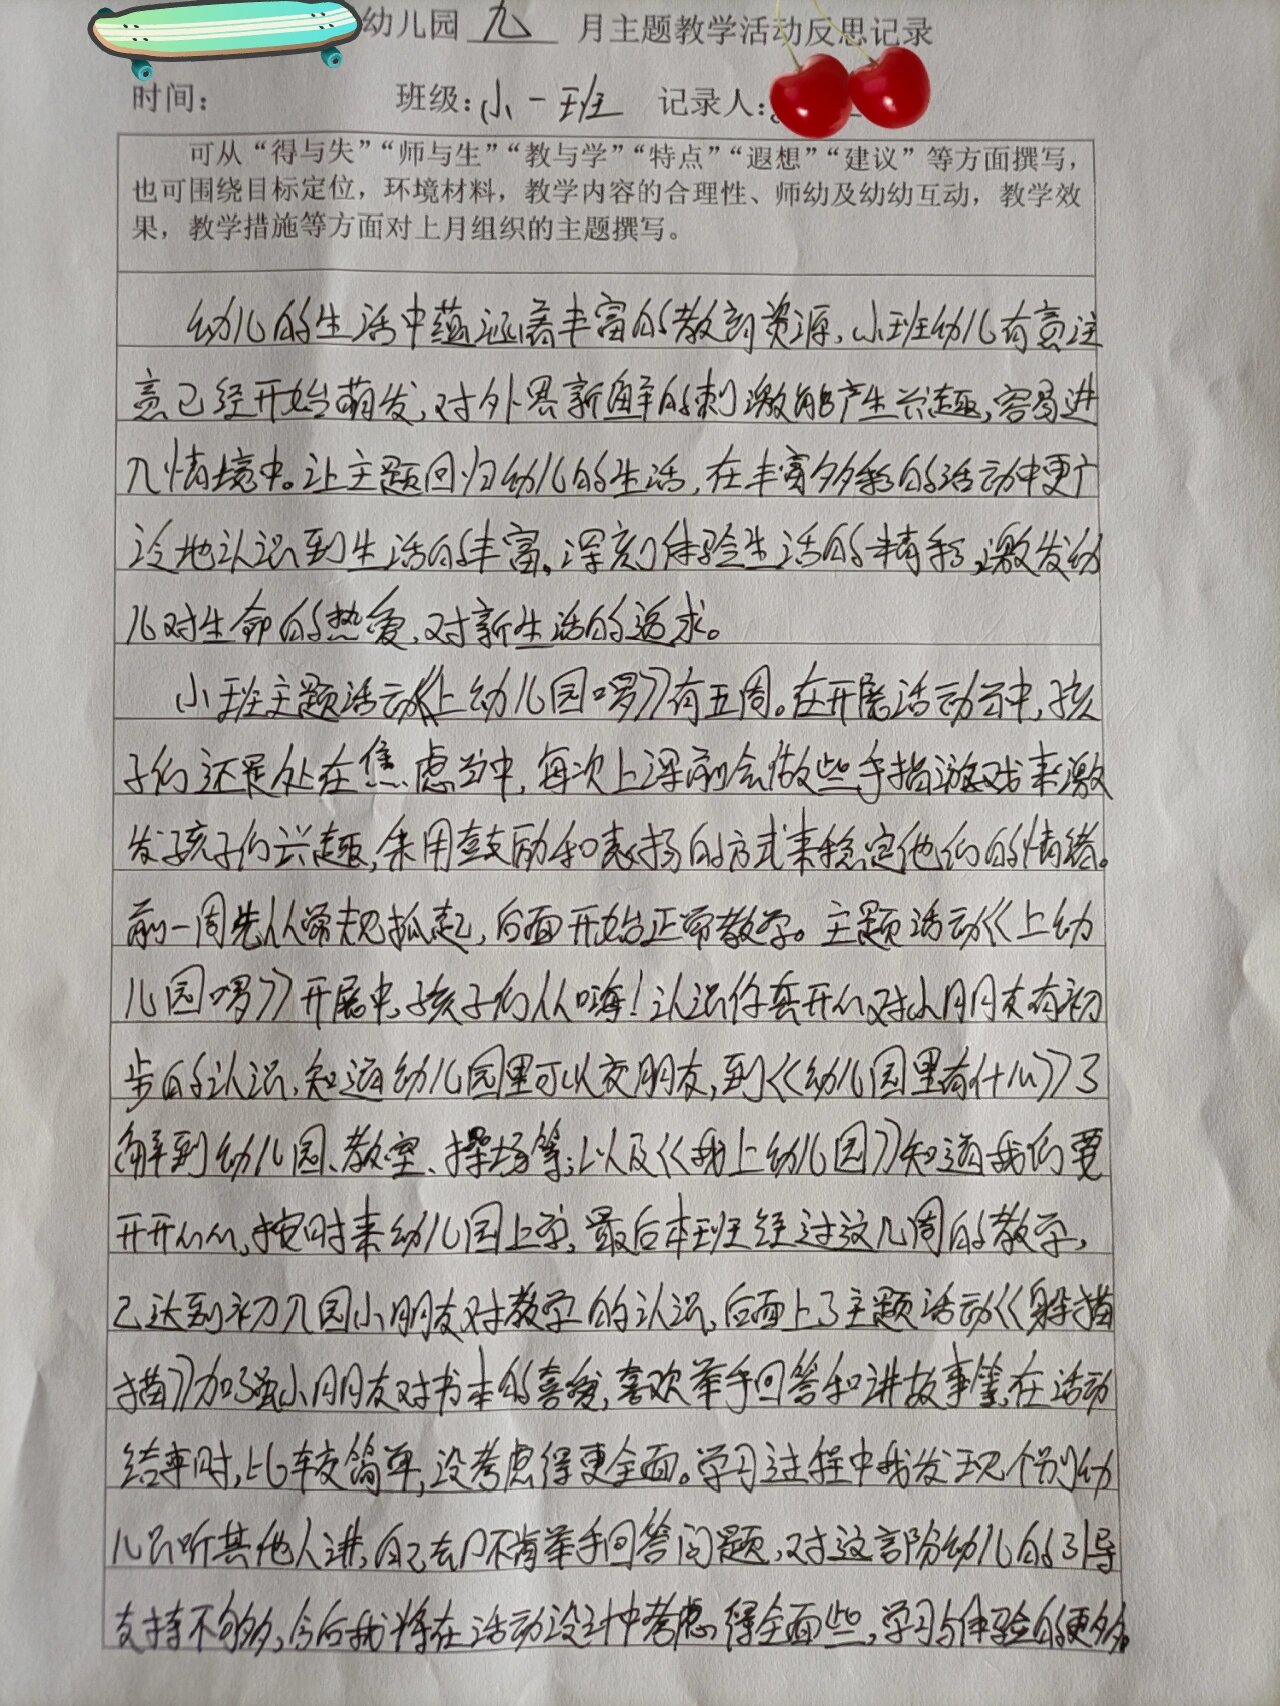 幼儿园 九 月主题教学活动反思记录
时间: 班级:小一班 记录人:
可从“得与失”“师与生”“教与学”“特点”“遐想”“建议”等方面撰写，
也可围绕目标定位，环境材料，教学内容的合理性、师幼及幼幼互动，教学效
果，教学措施等方面对上月组织的主题撰写。
幼儿的生活中蕴涵着丰富的教育资源，小班幼儿有意注
意已经开始萌发，对外界新鲜的刺激能产生兴趣，容易进
入情境中。让主题回归幼儿的生活，在丰富多彩的活动中更广
泛地认识到生活的丰富，深刻体验生活的精彩，激发幼
儿对生命的热爱，对新生活的追求。
小班主题活动《上幼儿园啰》有五周。在开展活动当中，孩
子们还是处在焦虑当中，每次上课前会做些手指游戏来激
发孩子们兴趣，采用鼓励和表扬的方式来稳定他们的情绪。
前一周先从常规抓起，后面开始正常教学。主题活动《上幼
儿园啰》开展中，孩子们从嗨！认识你真开心对小朋友有初
步的认识，知道幼儿园里可以交朋友，到《幼儿园里有什么》了
解到幼儿园、教室、操场等；以及《我上幼儿园》知道我们要
开开心心，按时来幼儿园上学，最后本班经过这几周的教学，
已达到初入园小朋友对教学的认识，后面上了主题活动《躲猫
猫》加强小朋友对书本的喜爱，喜欢举手回答和讲故事等，在活动
结束时，比较简单，没考虑得更全面。学习过程中我发现个别幼
儿只听其他人讲，自己却不肯举手回答问题，对这部份幼儿的引导
支持不够多，今后我将在活动设计中考虑得全面些，学习与体验的更多。